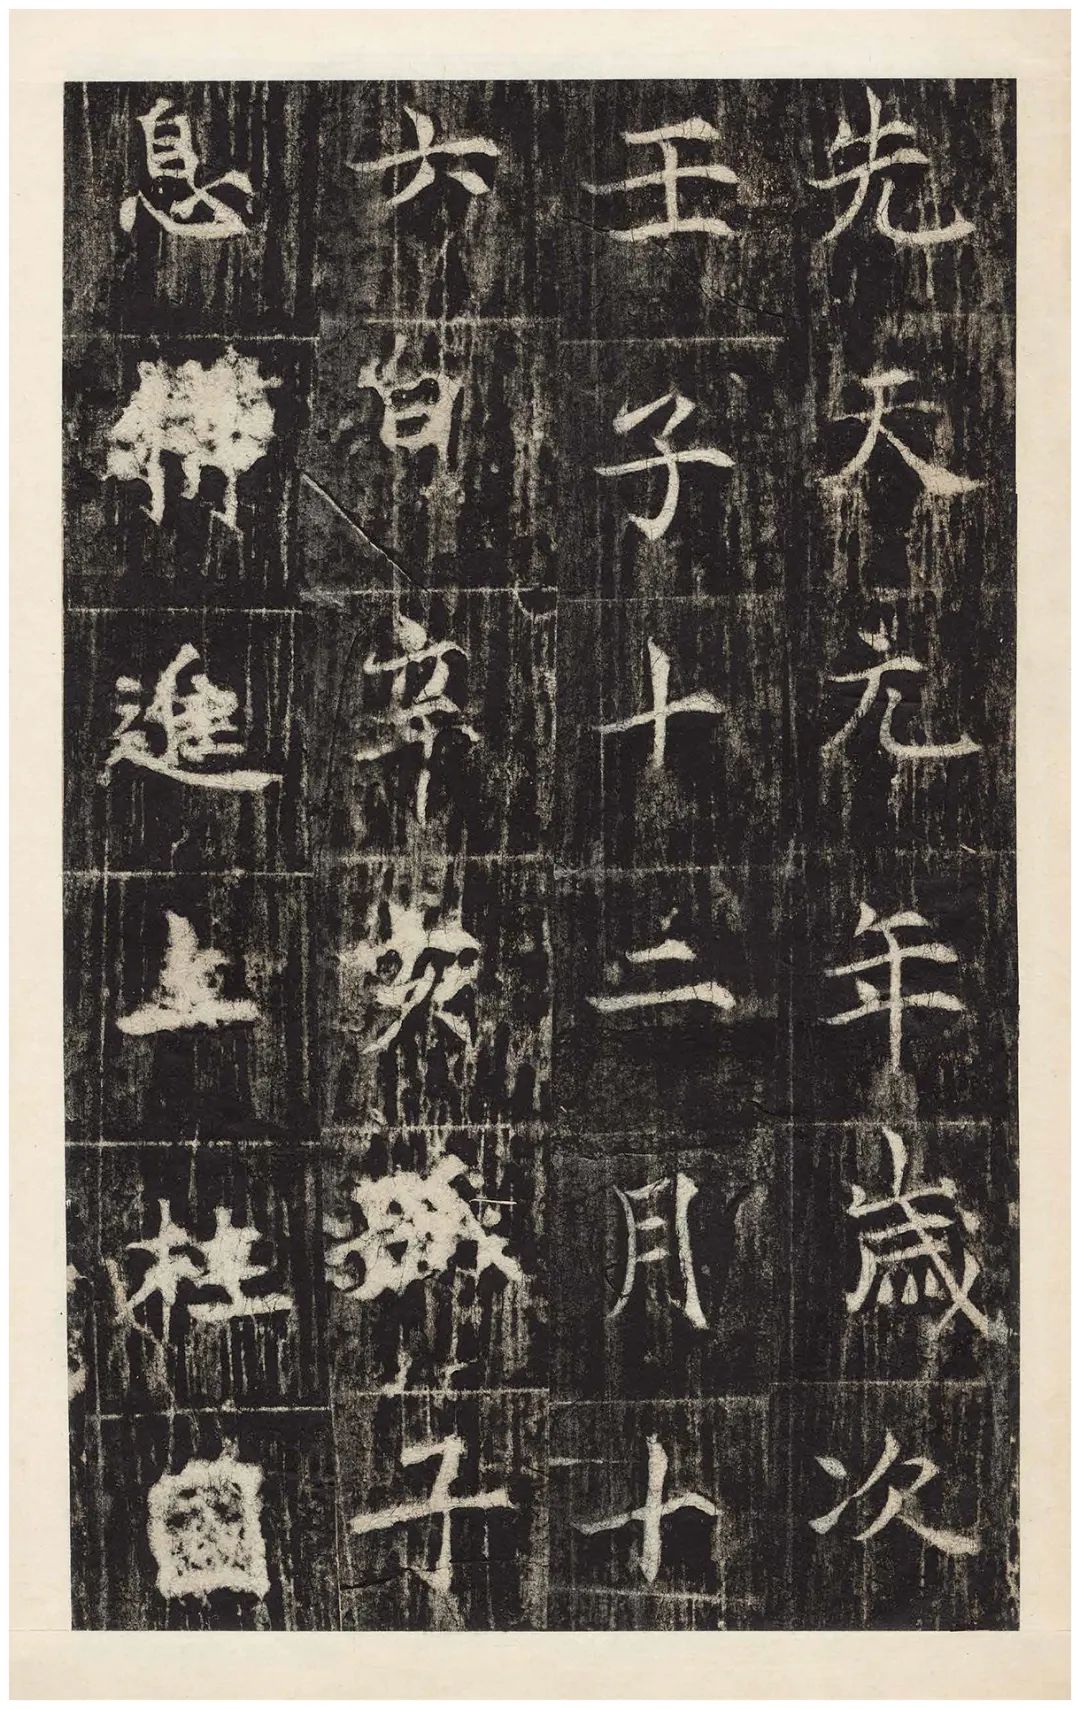 先天元年歲次
壬子十二月十
六日辛亥子
息進上柱國